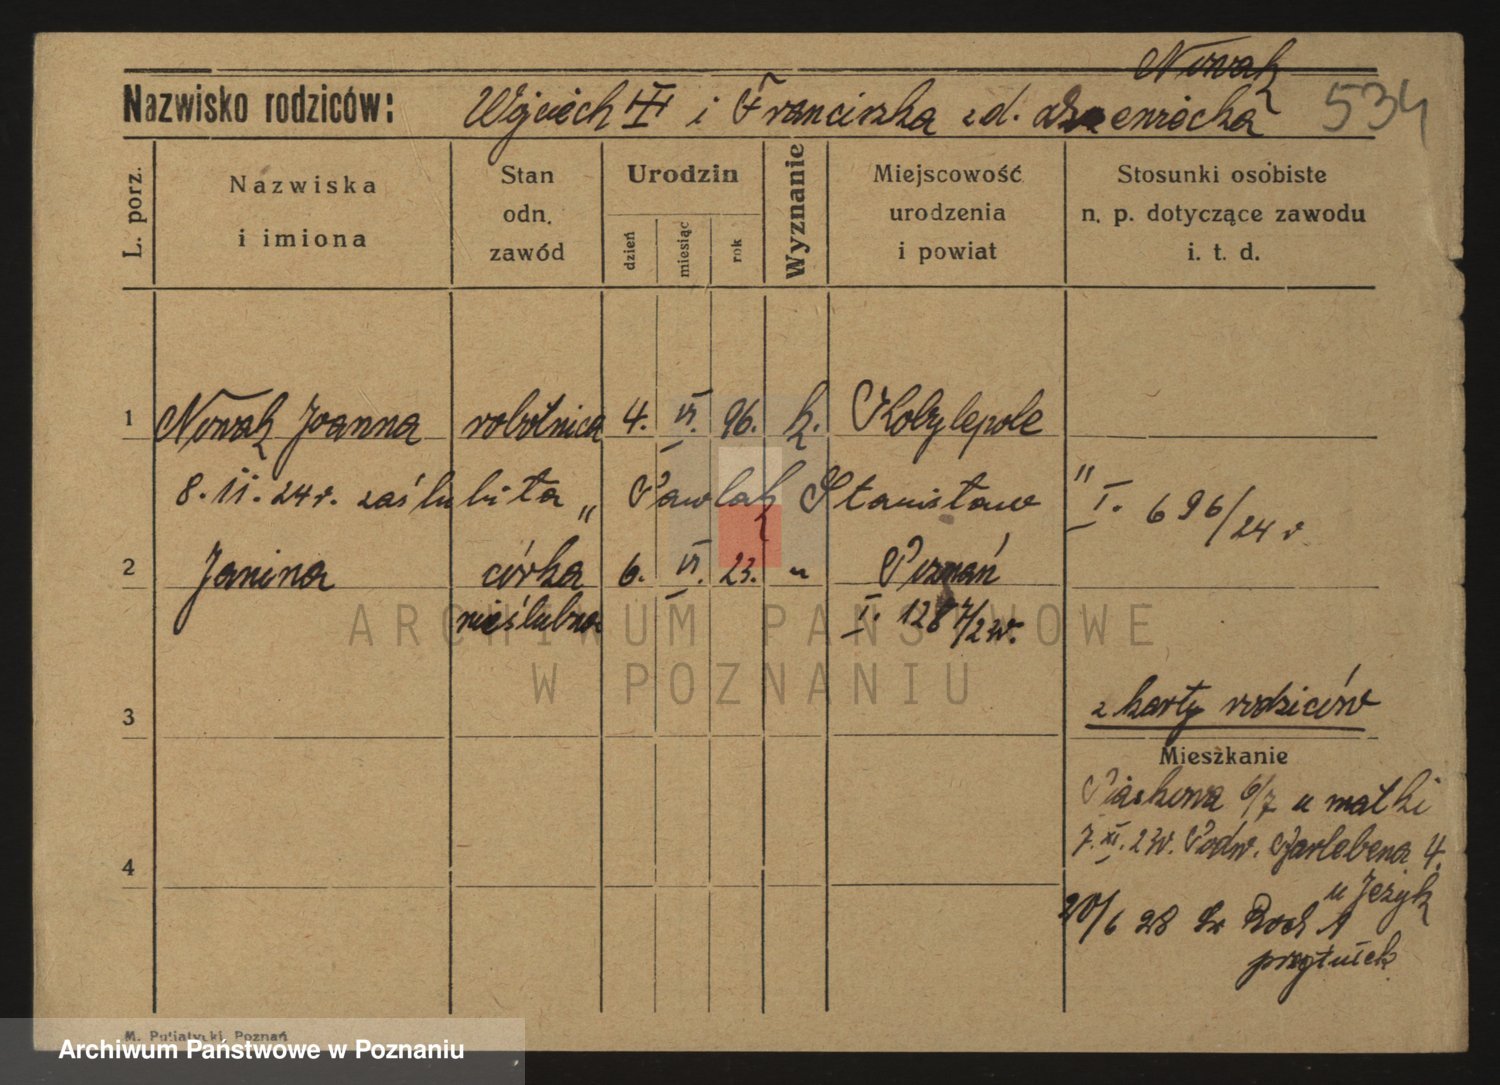 Nowak
Nazwisko rodziców: Wojciech III i Franciszka zd. 534
L. porz.
Nazwiska
i imiona
Stan
odn.
zawód
Urodzin
dzień miesiąc rok
Wyznanie
Miejscowość
urodzenia
i powiat
Stosunki osobiste
n. p. dotyczące zawodu
i. t. d.
1 Nowak Joanna robotnica 4. VI. 96. k. Kobylepole
8. II. 24 r. zaślubiła „ Pawlak Stanisław " I. 696/24 r
2 Janina córka 6. VI. 23. " Poznań
nieślubna I. 1287/23r.
3 z karty rodziców
Mieszkanie
Piaskowa 6/7 u matki
7. XI. 23r. Podw. 4.
4 u Jeżyk
20/6 28 Św Roch 1
przytułek
M. Putiatycki, Poznań
ARCHIWUM PAŃSTWOWE
W POZNANIU
Archiwum Państwowe w Poznaniu